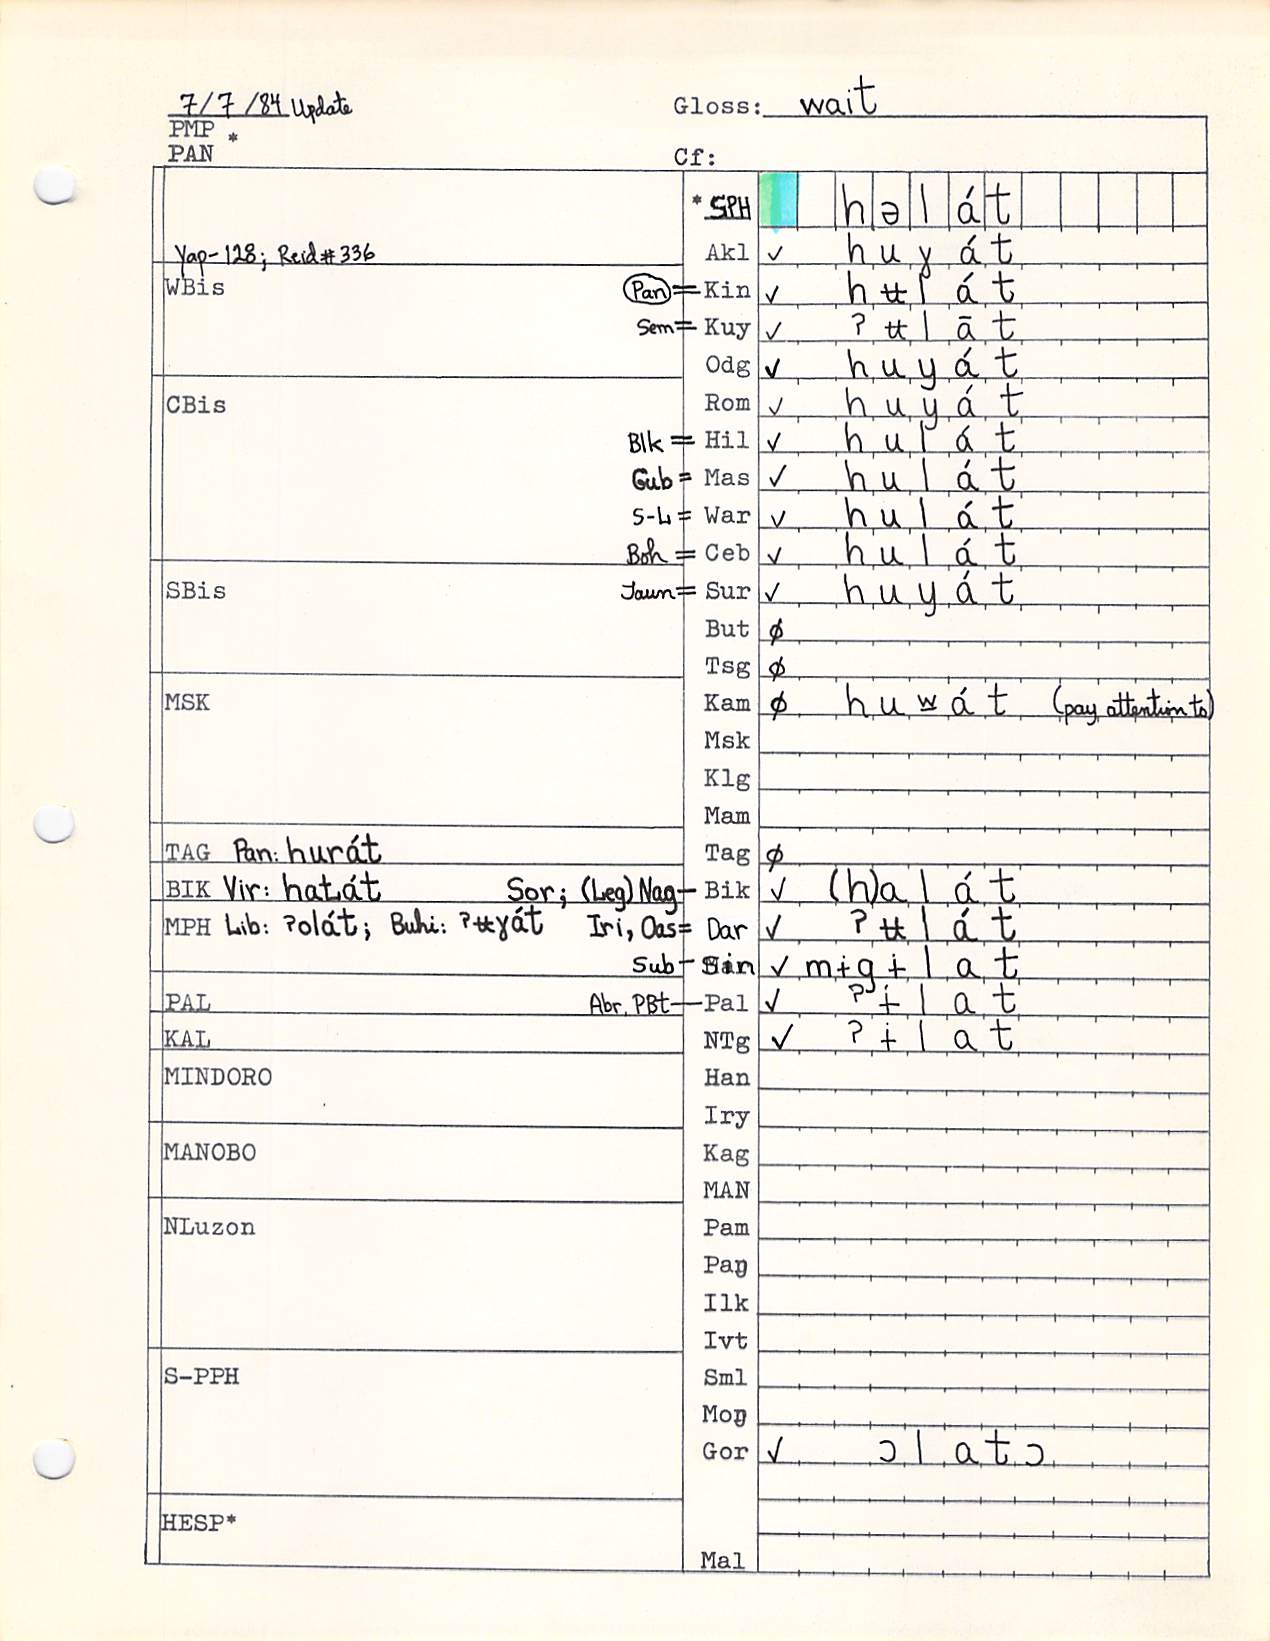 7/7/84 Update Gloss: wait
PMP *
PAN Cf:
* SPH həlát
Yap-128; Reid#336 Akl ✓ huɣát
WBis Pan = Kin ✓ hʉlát
Sem = Kuy ✓ ʔʉlāt
Odg ✓ huyát
CBis Rom ✓ huyát
Blk = Hil ✓ hulát
Gub = Mas ✓ hulát
S-L = War ✓ hulát
Boh = Ceb ✓ hulát
SBis Jaun = Sur ✓ huyát
But ∅
Tsg ∅
MSK Kam ∅ huwát (pay attention to)
Msk
Klg
Mam
TAG Pan: hurát Tag ∅
BIK Vir: haLát Sor; (Leg) Nag - Bik ✓ (h)alát
MPH Lib: ʔolát; Buhi: ʔʉɣát Iri, Oas = Dar ✓ ʔʉlát
Sub - Sin ✓ mɨgɨlat
PAL Abr, PBt - Pal ✓ ʔɨlat
KAL NTg ✓ ʔɨlat
MINDORO Han
Iry
MANOBO Kag
MAN
NLuzon Pam
Paŋ
Ilk
Ivt
S-PPH Sml
Moŋ
Gor ✓ ɔlatɔ
HESP*
Mal